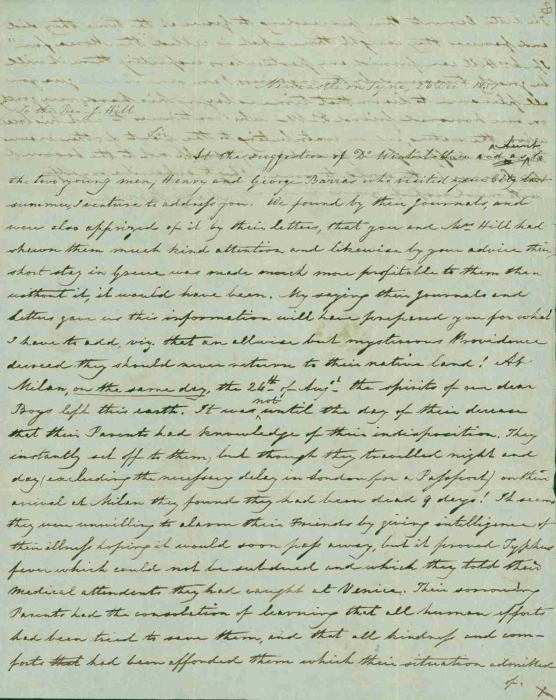 Newcastle on Tyne, 26 Dec.r 1837
To the Rev. J. Hill
Sir,
At the suggestion of Dr. and as Aunt to
the two young men, Henry and George Barras who visited your City last
summer, I venture to address you. We found by their Journals, and
were also apprized of it by their letters, that you and Mrs. Hill had
shewn them much kind attention and likewise by your advice their
short stay in Greece was made much more profitable to them than
without it, it would have been. My saying their Journals and
letters gave us this information will have prepared you for what
I have to add, viz, that an allwise but mysterious Providence
decreed they should never return to their native land! At
Milan, on the same day, the 26th of Augst. the spirits of our dear
Boys left this earth. It was not until the day of their decease
that their Parents had knowledge of their indisposition. They
instantly set off to them, but though they travelled night and
day (excluding the necessary delay in London for a Passport) on their
arrival at Milan they found they had been dead 9 days! It seems
they were unwilling to alarm their Friends by giving intelligence of
their illness hoping it would soon pass away, but it proved Typhus
fever which could not be subdued and which they told their
Medical attendents they had caught at Venice. Their sorrowing
Parents had the consolation of learning that all human efforts
had been tried to save them, and that all kindness and com-
forts that had been afforded them which their situation admitted
of.